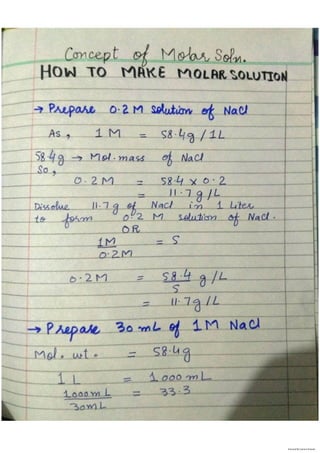 Concept of Molar Soln.
HOW TO MAKE MOLAR SOLUTION
→ Prepare 0.2M solution of NaCl
As, 1M = 58.4g/1L
58.4g → Mol. mass of NaCl
So,
0.2M = 58.4 x 0.2
= 11.7g/L
Dissolve 11.7g of NaCl in 1 Liter
to form 0.2 M solution of NaCl.
OR
1M = 5
0.2M
0.2M = 58.4 g/L
5
= 11.7g/L
→ Prepare 30mL of 1M NaCl
Mol. wt. = 58.4g
1L = 1000mL
1000mL = 33.3
30mL